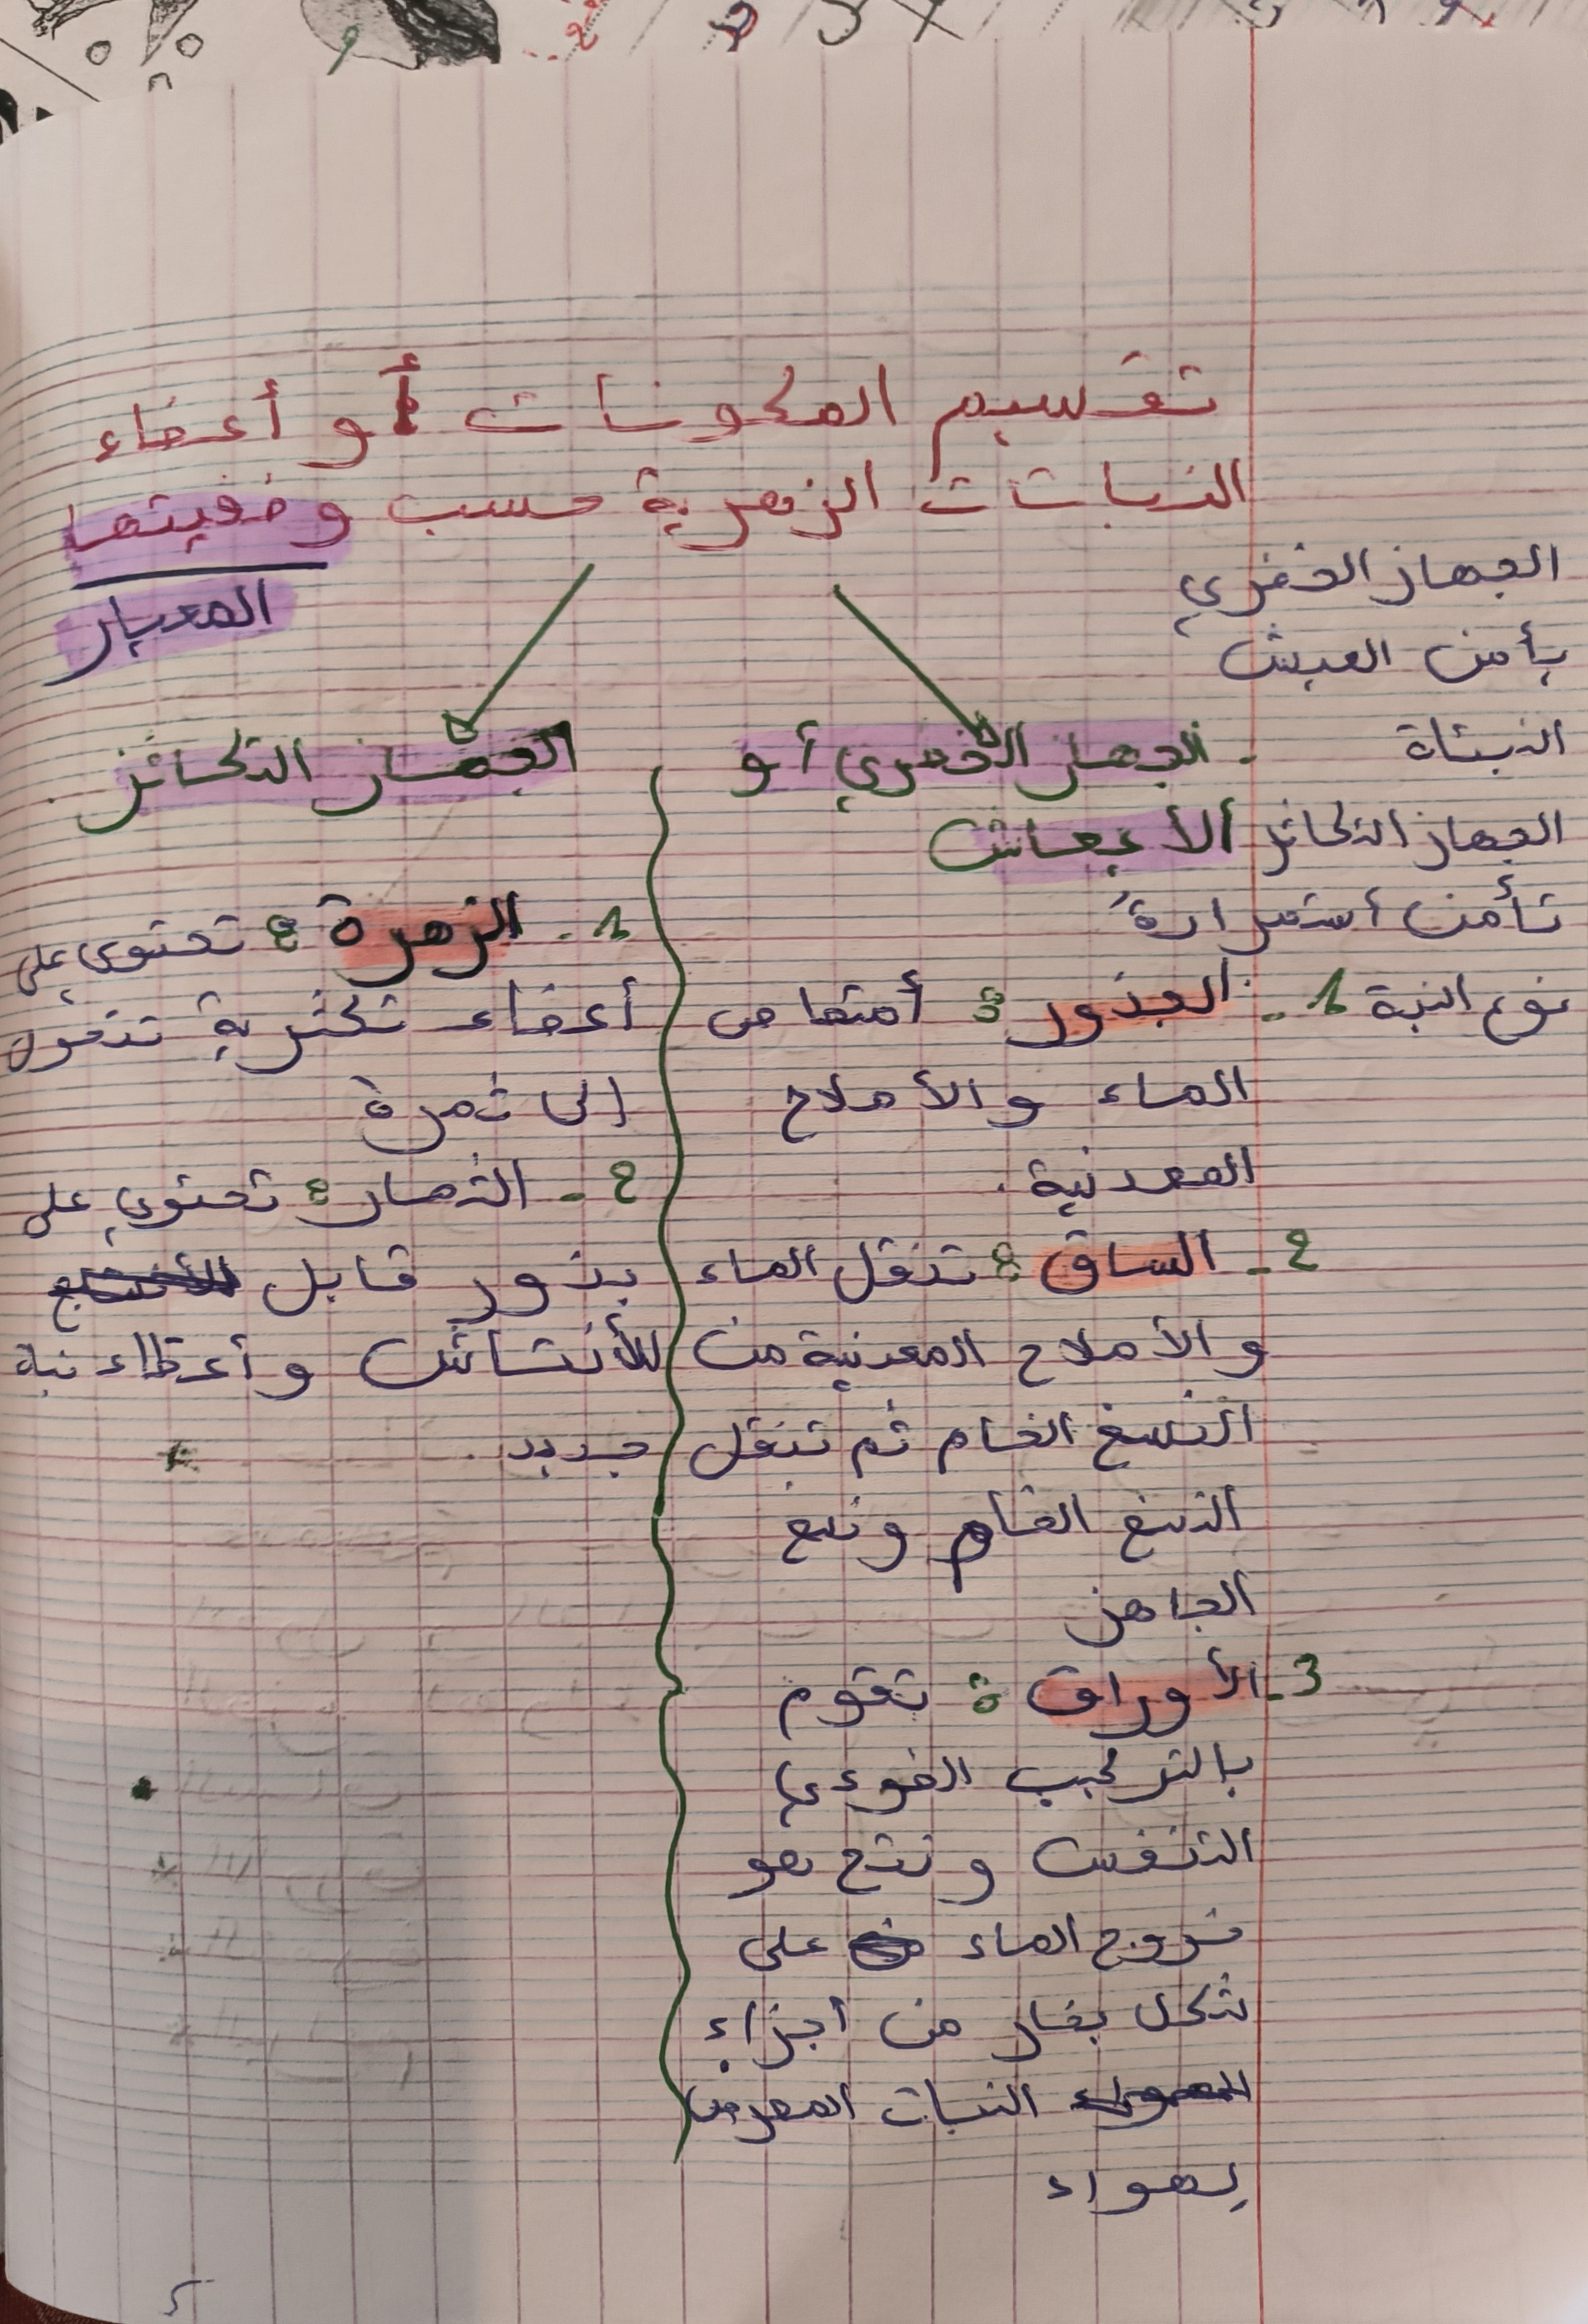 تقسيم المكونات أو أعضاء
النباتات الزهرية حسب وضفيتها
المعيار
الجهاز الخضري
يأمن العيش
النبتاة
الجهاز التكاثر
تأمن استمرارة
نوع النبة
- الجهاز الخضري أو
الأعيعاش
1 - الجذور : أمتصاص
الماء والأملاح
المعدنية .
2 - الساق : تنقل الماء
و الأملاح المعدنية من
النسغ الخام ثم تنقل
النسغ الخام ونسغ
الجاهز
3 - الأوراق : تقوم
بالتركيب الضوءي
التنفس و نتح هو
خروج الماء على
شكل بخار من اجزاء
النبات المعرض
لهواء
الجهاز التكاثر
1 - الزهرة : تحتوي على
أعضاء تكثرية تتحول
إلى ثمرة
2 - الثمار : تحتوي على
بذور قابل
للأنتاش وأعطاء نبة
جديد .